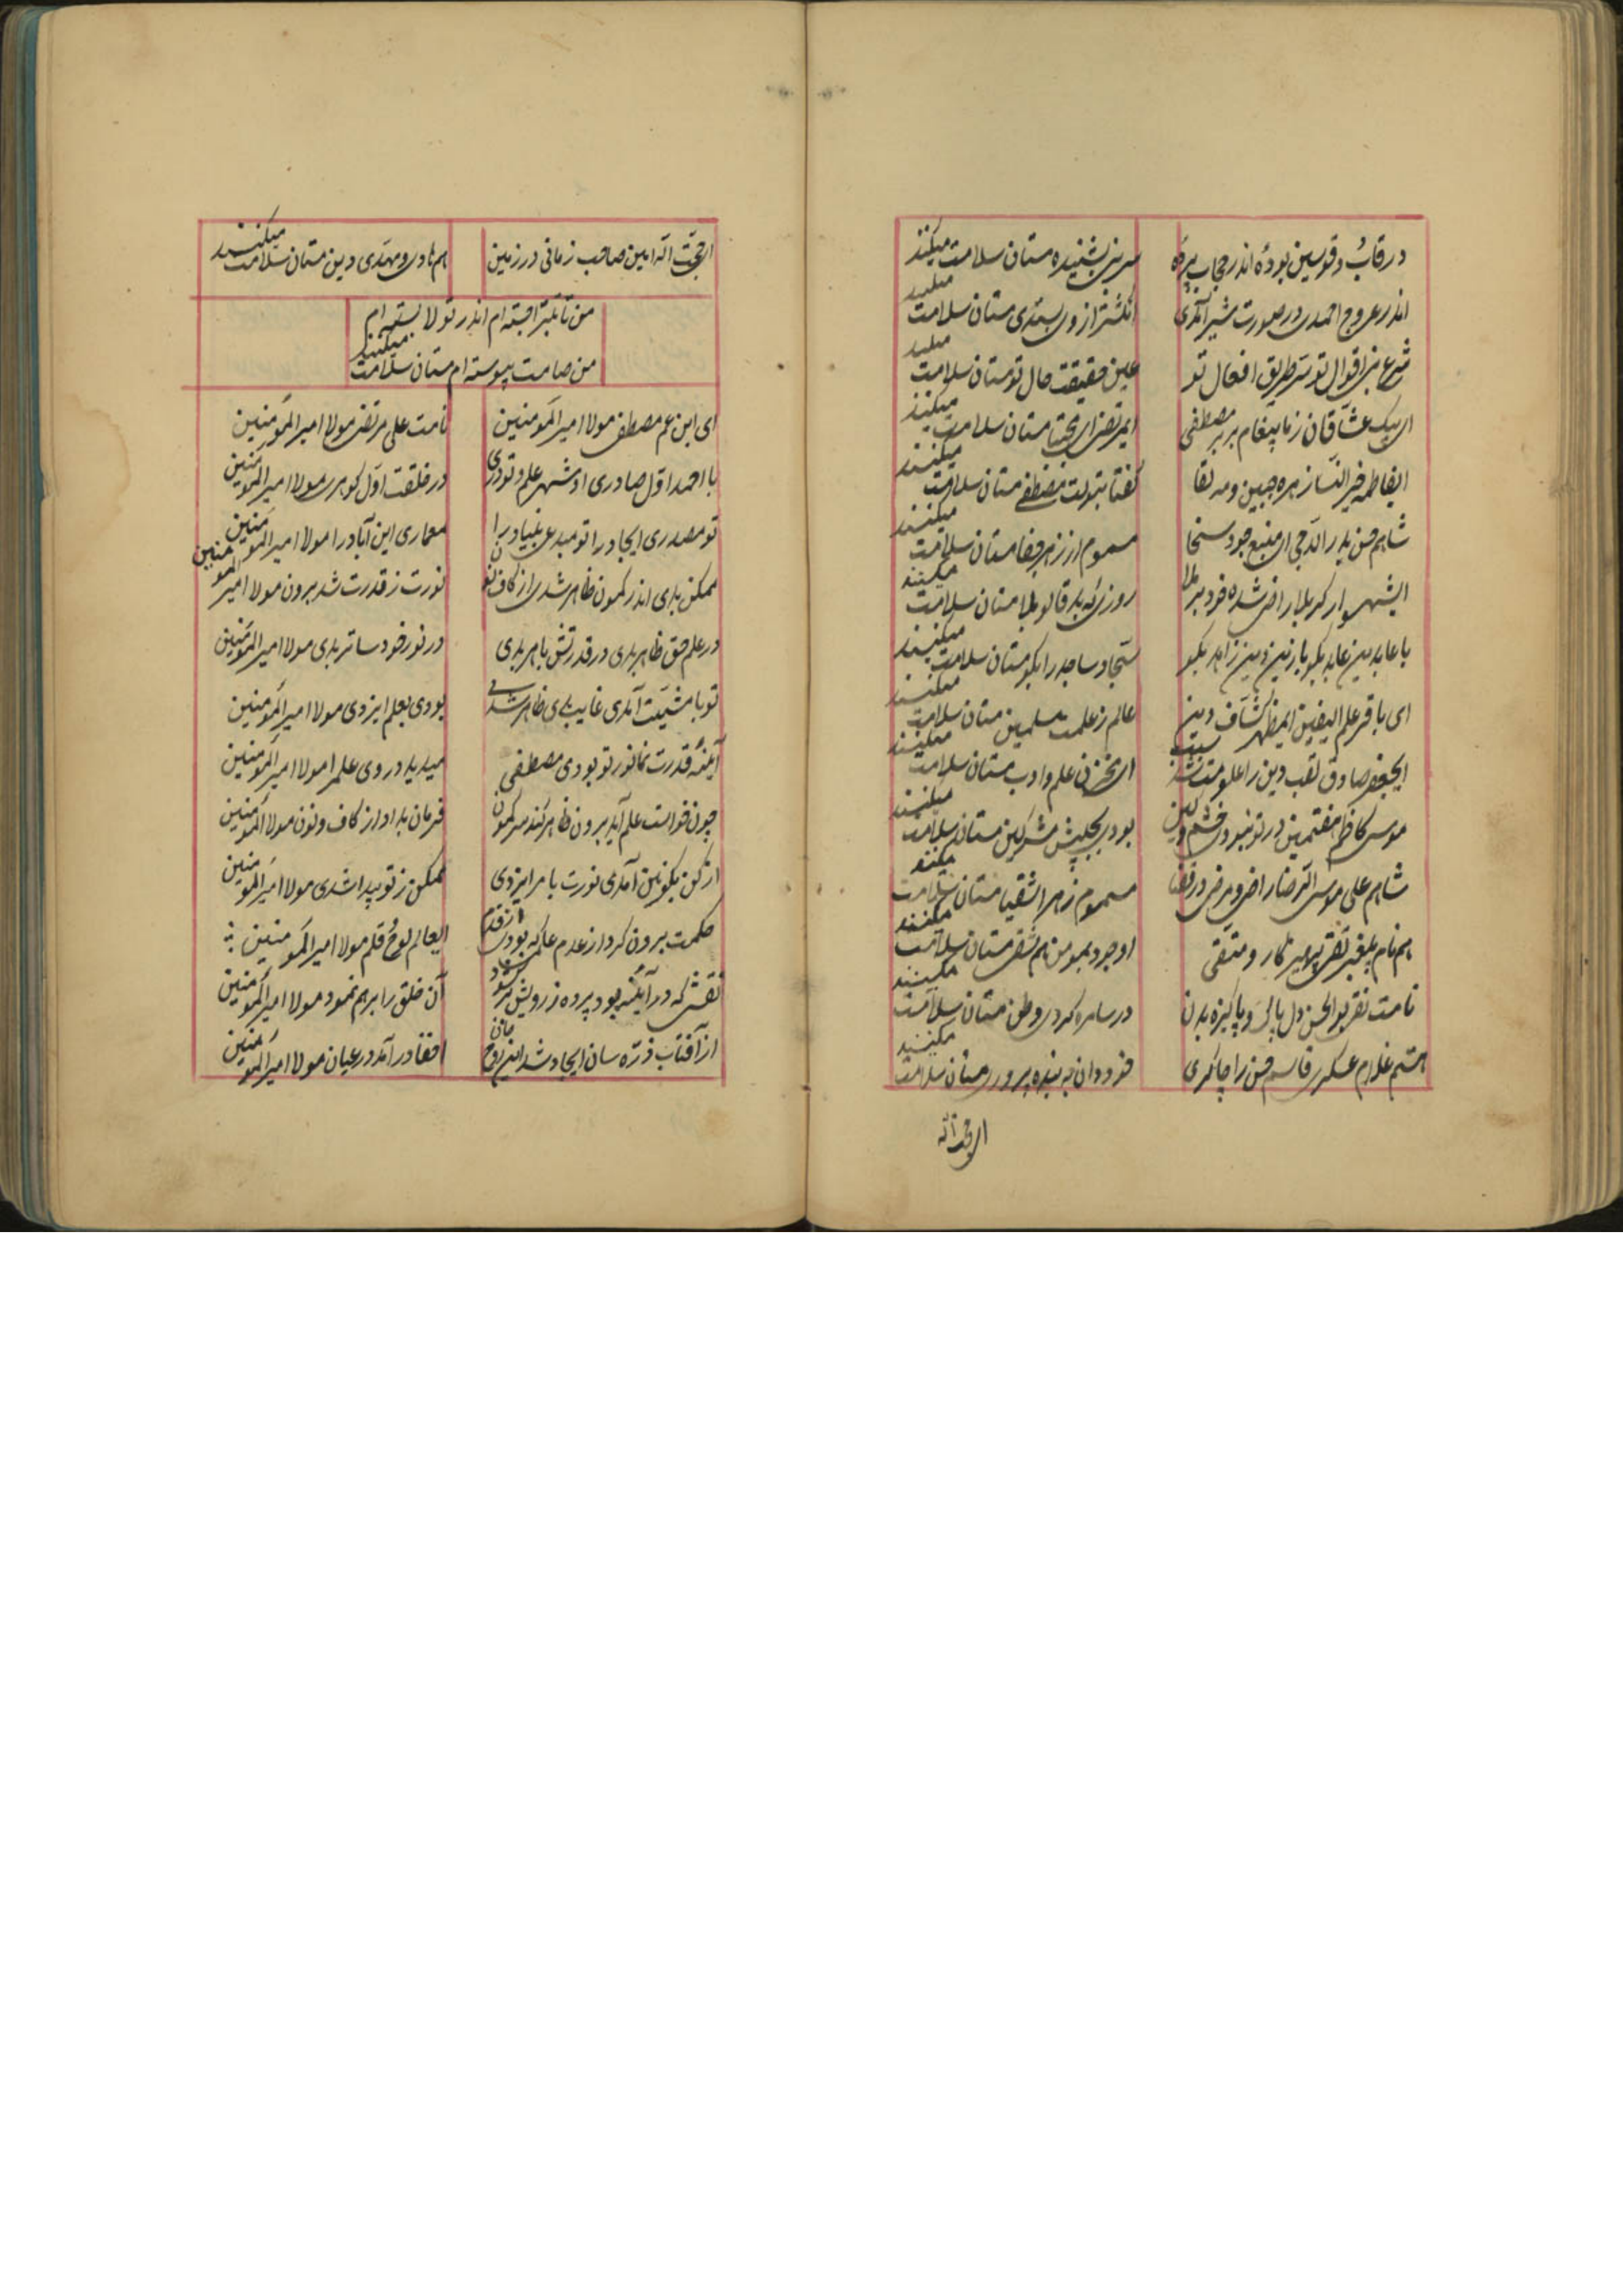 در قاب و قوسین بوده اندر حجاب پرده سر نبی بشنیده مستان سلامت میکنند
اندر عروج احمدی در صورت شیر آمدی انگشتر از وی بستدی مستان سلامت میکنند
شرع نبی اقوال تو سر طریق افعال تو عین حقیقت حال تو مستان سلامت میکنند
ای پیک عشاقان ز ما پیغام بر بر مصطفی ای مرتضی ای مجتبا مستان سلامت میکنند
ایفاطمه خیر النسا زهره جبین و مه لقا گفتا بتولت مصطفی مستان سلامت میکنند
شاهم حسن بدر الدجی ای منبع جود سخا مسموم از زهر جفا مستان سلامت میکنند
ایشهسوار کربلا راضی شده خود بر بلا روزی که بد قالو بلا مستان سلامت میکنند
با عابدین عابد بگو با زین دین زاهد بگو سجاد ساجد را بگو مستان سلامت میکنند
ای باقر علم الیقین ایمظهر کشاف دین عالم ز علمت مسلمین مستان سلامت میکنند
ایجعفر صادق لقب دین را علومت شد سبب ای مخزن علم و ادب مستان سلامت میکنند
موسی کاظم هفتمین در تو نبود خشم و کین بودی بحبس مشرکین مستان سلامت میکنند
شاهم علی موسی الرضا راضی و مرضی در قضا مسموم زهر اشقیا مستان سلامت میکنند
هم نام پیغمبر تقی پرهیزکار و متقی او جود بمو من هم شقی مستان سلامت میکنند
نامت نقی بو الحسن دل پاک و پاکیزه بدن در سامره کردی وطن مستان سلامت میکنند
هستم غلام عسکری قاسم حسن را چاکری پرور مستان سلامت میکنند
ای حجت اله
ای حجت اله امین صاحب زمانی در زمین هم هادی و مهدی دین مستان سلامت میکنند
من تا تبرا جسته ام اندر تولا بسته ام
من صامت پیوسته ام مستان سلامت میکنند
ای ابن عم مصطفی مولا امیر المومنین نامت علی مرتضی مولا امیر المومنین
با احمد اول صادری او شهر علم و تو دری در خلقت اول گوهری مولا امیر المومنین
تو مصدری ایجاد را تو مبدعی بنیاد را معماری این آباد را مولا امیر المومنین
ممکن بدی اندر کمون ظاهر شدی از کاف نون نورت ز قدرت شد برون مولا امیر المومنین
در علم حق ظاهر بدی در قدرتش باهر بدی در نور خود ساتر بدی مولا امیر المومنین
تو با مشیت آمدی غایب بدی ظاهر شدی بودی بعلم ایزدی مولا امیر المومنین
آینه قدرت نما نور تو بودی مصطفی میدید در وی علم را مولا امیر المومنین
چون خواست علم آید برون ظاهر کند سر کمون فرمان بداد از کاف و نون مولا المومنین
از کن یکونی آمدی نورت بامر ایزدی ممکن ز تو پیدا شدی مولا امیر المومنین
حکمت برون کرد از عدم علمی که بودی از قدم ایعالم لوح قلم مولا امیر المومنین
نقشی که در آینه بود پرده ز رویش بر گشود آن خلق را بر هم نمود مولا امیر المومنین
از آفتاب ذره سان ایجاد شد این روح مان اخفا در آمد در عیان مولا امیر المومنین